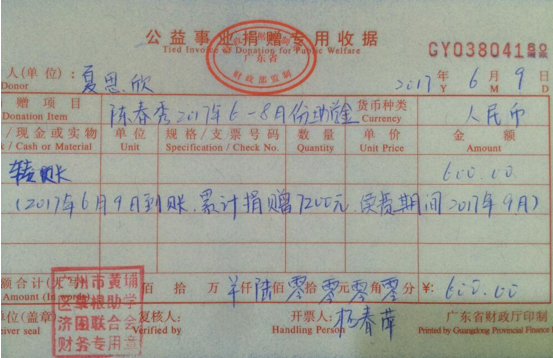 公益事业捐赠专用收据
Tied Invoice Donation for Public Welfare
广东省
财政部监制
GY03804182
人(单位): 夏思欣 2017年6月9日
Donor Y M D
赠项目 陈春秀2017年6-8月份助学金 货币种类 人民币
Donation Item Currency
/现金或实物 单位 规格/支票号码 数量 单价 金额
/ Cash or Material Unit Specification / Check No. Quantity Unit Price Amount
转账 600.00
(2017年6月9日到账.累计捐赠7200元.续费期间2017年9月)
额合计(大写) 佰 拾 万 羊仟陆佰零拾零元零角零分 ¥: 600.00
Amount (In
广州市黄埔
区寮根助学
济困联合会
财务专用章
单位(盖章) 复核人: 开票人: 杨春萍 广东省财政厅印制
eiver seal Verified by: Handling Person Printed by Guangdong Provincial Finance